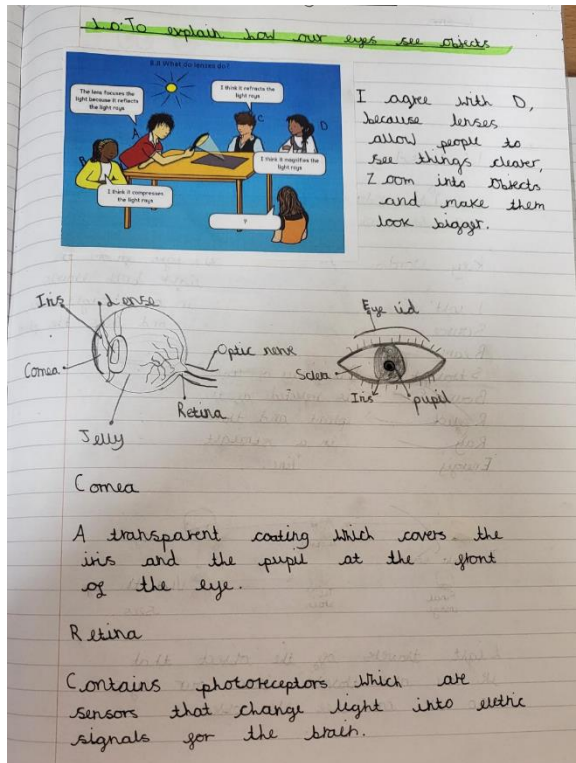 L.O: To explain how our eyes see objects
3.4 What do lenses do?
The lens focuses the
light because it reflects
the light rays
A
I think it refracts the
light rays
C
D
I think it magnifies the
light rays
I think it compresses
the light rays
?
I agree with D,
because lenses
allow people to
see things clearer,
Zoom into objects
and make them
look bigger.
Iris
Lense
Cornea
Optic nerve
Retina
Jelly
Eye lid
Sclera
Iris
pupil
Cornea
A transparent coating which covers the
iris and the pupil at the front
of the eye.
Retina
Contains photoreceptors which are
sensors that change light into elctric
signals for the brain.